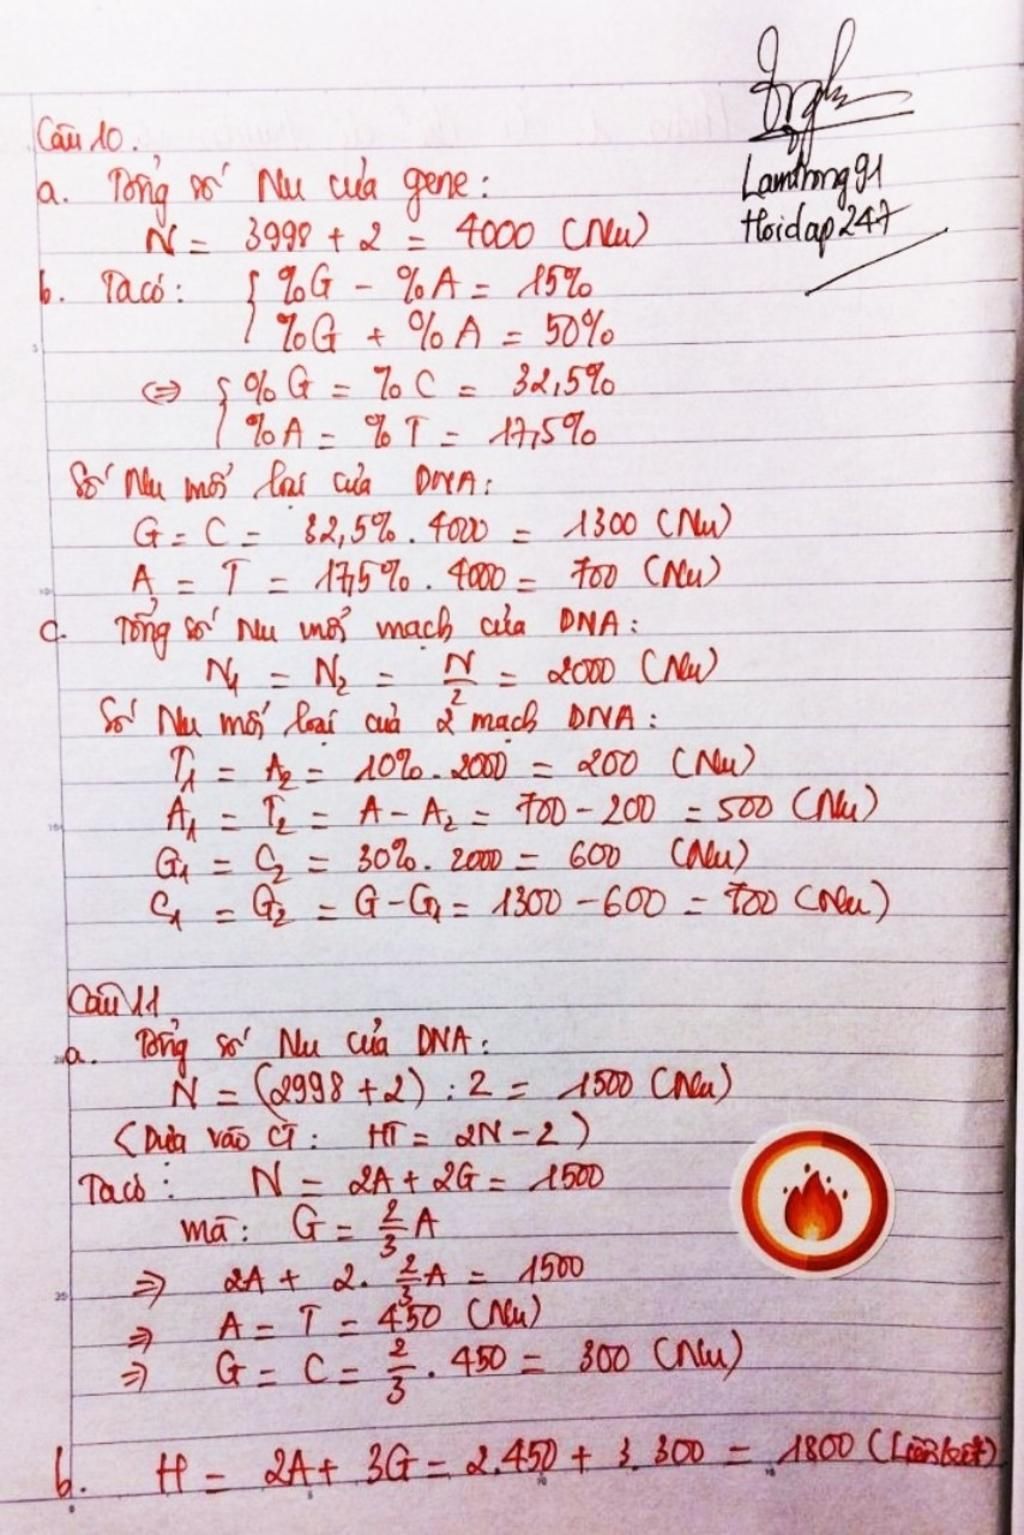 Lamthong91
Hoidap247
Câu 10.
a. Tổng số Nu của gene:
N = 3998 + 2 = 4000 (Nu)
b. Ta có: { %G - %A = 15%
%G + %A = 50%
⇔ { %G = %C = 32,5%
%A = %T = 17,5%
Số Nu mỗi loại của DNA:
G = C = 32,5% . 4000 = 1300 (Nu)
A = T = 17,5% . 4000 = 700 (Nu)
c. Tổng số Nu mỗi mạch của DNA:
N₁ = N₂ = N/2 = 2000 (Nu)
Số Nu mỗi loại của 2 mạch DNA:
T₁ = A₂ = 10% . 2000 = 200 (Nu)
A₁ = T₂ = A - A₂ = 700 - 200 = 500 (Nu)
G₁ = C₂ = 30% . 2000 = 600 (Nu)
C₁ = G₂ = G - G₁ = 1300 - 600 = 700 (Nu)
Câu 11
a. Tổng số Nu của DNA:
N = (2998 + 2) : 2 = 1500 (Nu)
(Dựa vào CT: HT = 2N - 2)
Ta có: N = 2A + 2G = 1500
mà: G = 2/3 A
⇒ 2A + 2. 2/3 A = 1500
⇒ A = T = 450 (Nu)
⇒ G = C = 2/3 . 450 = 300 (Nu)
b. H = 2A + 3G = 2.450 + 3.300 = 1800 (Liên kết)